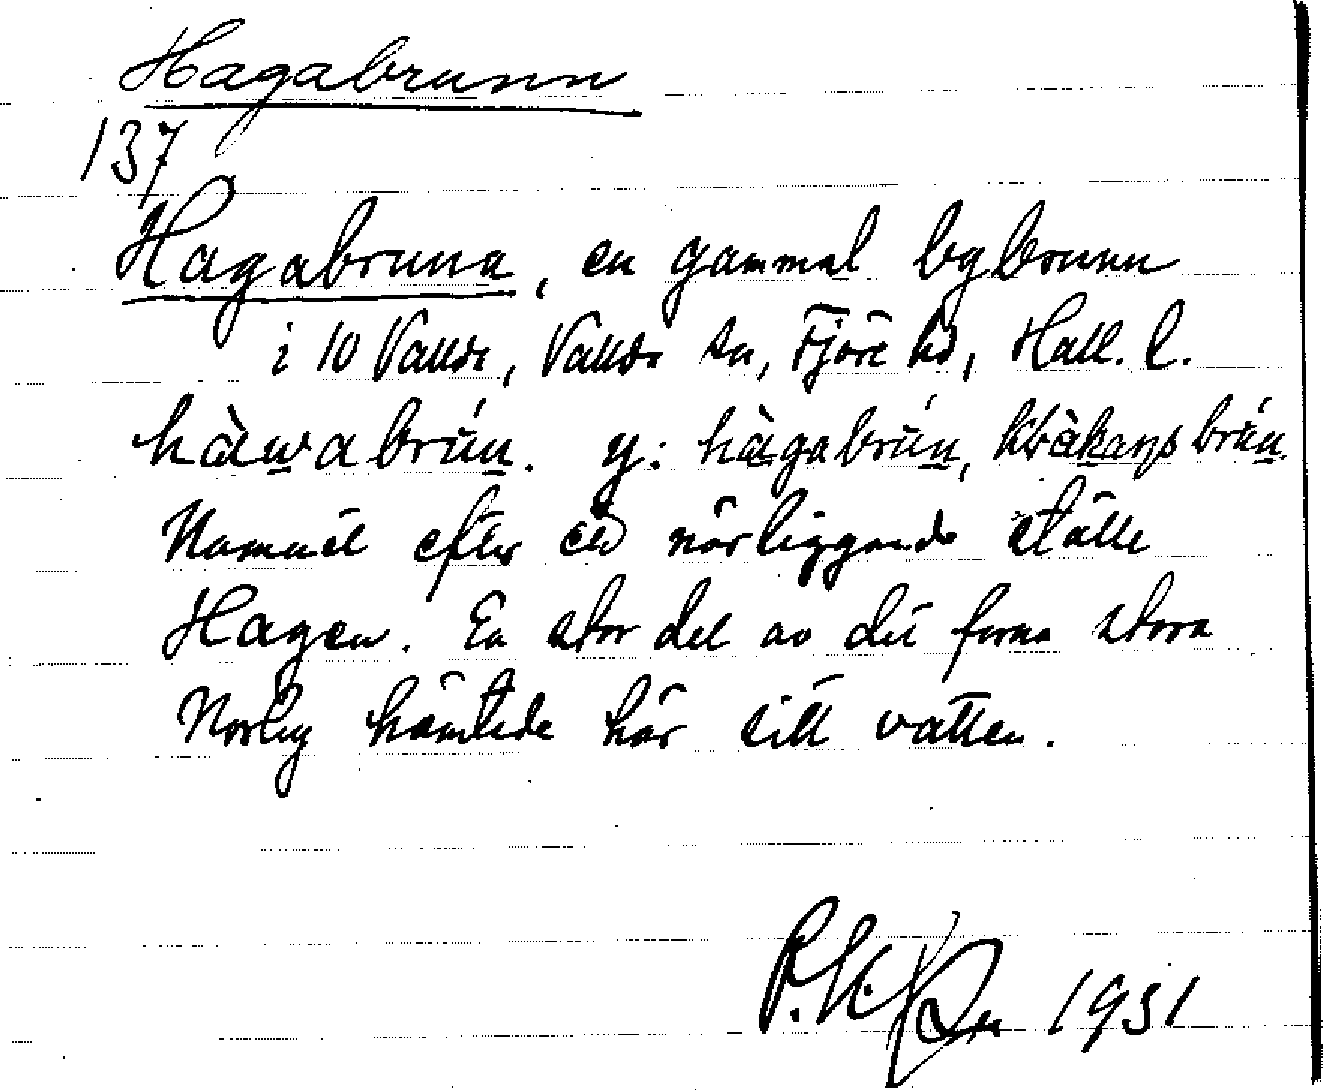 Hagabrunn
137
Hagabrunn, en gammal bybrunn
i 10 Vallda, Vallda sn, Fjäre hd, Hall. l.
hàwabrún. y: hàgabrún,
Namnet efter ett närliggande ställe
Hagen. En stor del av det forna stora
Norby hämtade här sitt vatten.
1931